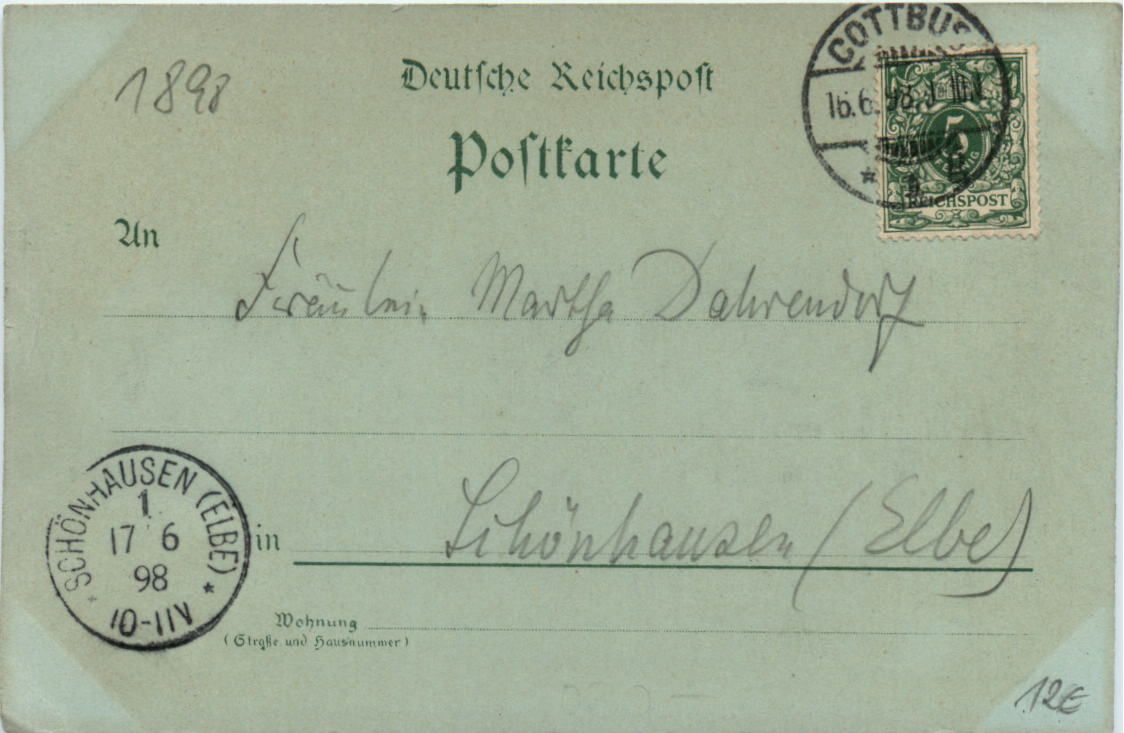 1898
Deutsche Reichspost
Postkarte
COTTBUS
16.6.98.
*
5
PFENNIG
REICHSPOST
An
Fräulein Martha Dahrendorf
SCHÖNHAUSEN (ELBE)
1.
17 6
98
10-11V
* *
in Schönhausen (Elbe)
Wohnung
(Straße und Hausnummer)
12€